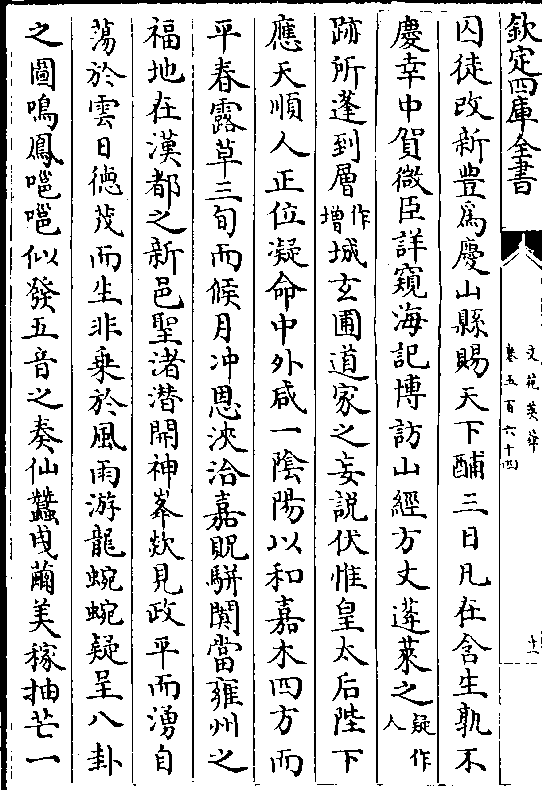 欽定四庫全書
文苑英華
卷五百六十四
囚徒改新豐爲慶山縣賜天下酺三日凡在含生孰不
慶幸中賀微臣詳窺海記博訪山經方丈蓬萊之疑作人
跡所蓬到層作增城玄圃道家之妄説伏惟皇太后陛下
應天順人正位凝命中外咸一陰陽以和嘉木四方而
平春露草三旬而候月冲恩浹洽嘉貺駢闐當雍州之
福地在漢都之新邑聖渚潛開神峯欻見政平而湧自
蕩於雲日德茂而生非乗於風雨游龍蜿蜿疑呈八卦
之圖鳴鳳嗈嗈似發五音之奏仙蠶曵繭美稼抽芒一